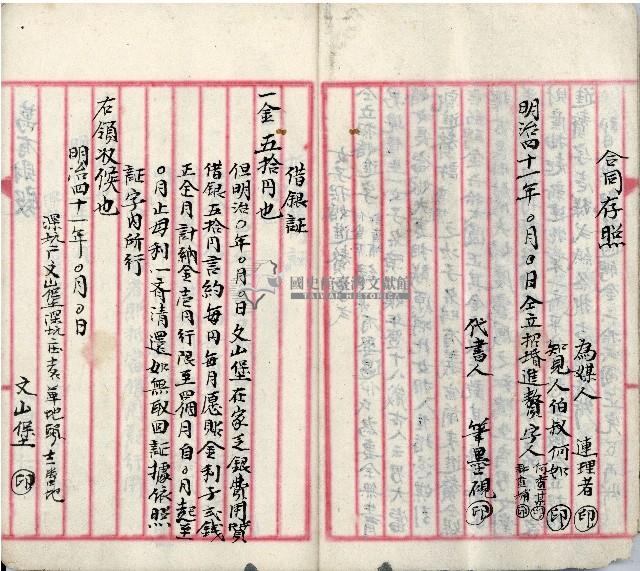 合同存照
為媒人 連理者 印
知見人伯叔何如 印
明治四十一年〇月〇日仝立招婚進贅字人
代書人 筆墨硯 印
借銀証
一金五拾円也
但明治〇年〇月〇日文山堡在家乏銀費用質
借銀五拾円言約每円每月愿貼金利子弍錢
正仝月計納金壱円行限至四個月自〇月起至
〇月止母利一齊清還如無取回証據依照
証字內所行
右領收候也
明治四十一年〇月〇日
深坑庁文山堡深坑庄
文山堡 印
國史館臺灣文獻館
TAIWAN HISTORICA